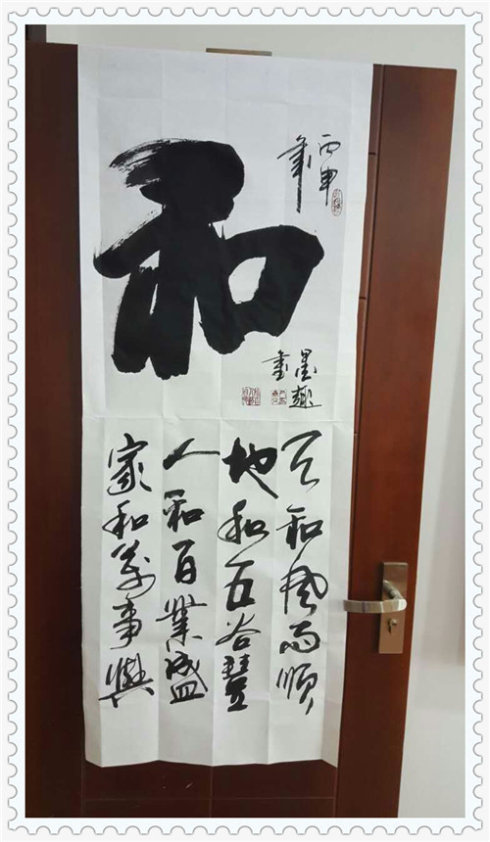 和
丙申
年
墨趣
書
天和風雨順
地和五谷豐
人和百業盛
家和萬事興